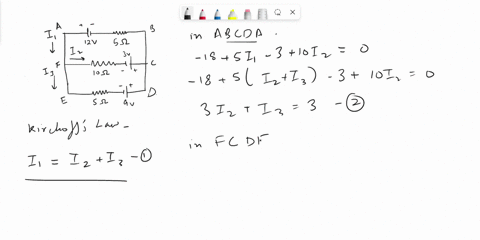 A
B
I₁
+ -
12V
5Ω
I₂
3V
F
C
10Ω
- +
I₃
- +
E
5Ω
9V
D
Kirchoff's Law -
I₁ = I₂ + I₃ - ①
in ABCDA.
-18 + 5I₁ - 3 + 10I₂ = 0
-18 + 5(I₂+I₃) - 3 + 10I₂ = 0
3I₂ + I₃ = 3 - ②
in FCDF